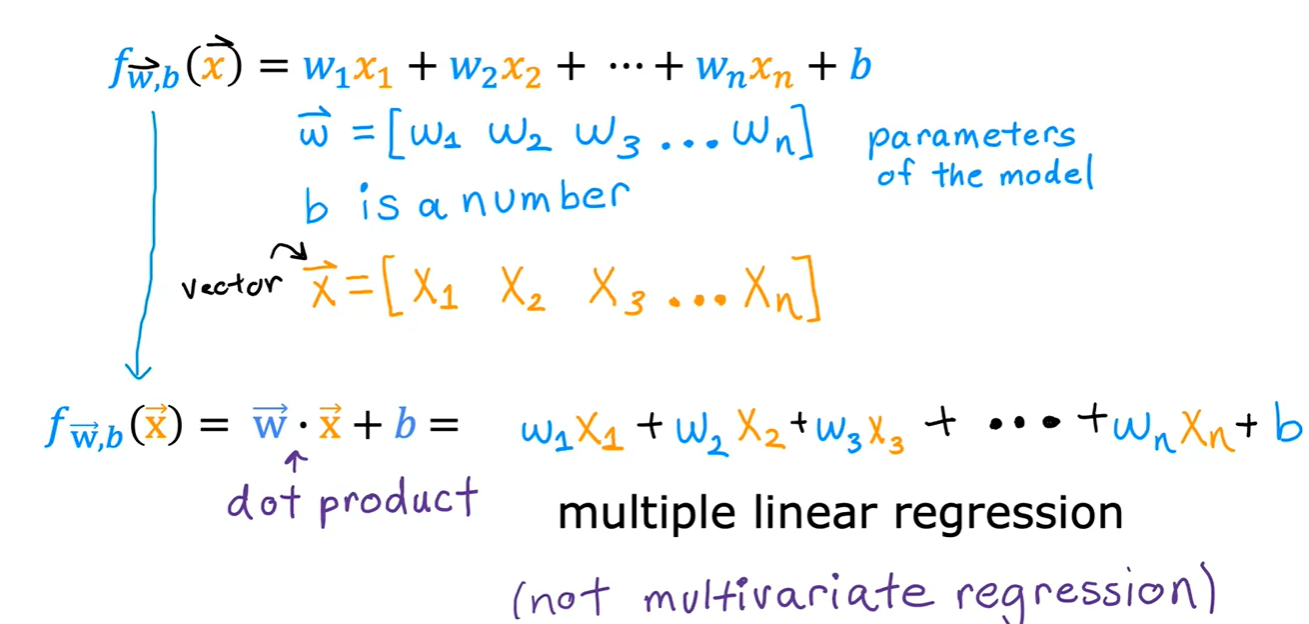 f w⃗,b (x⃗) = w₁x₁ + w₂x₂ + ⋯ + wₙxₙ + b
w⃗ = [w₁ w₂ w₃ ... wₙ] parameters
of the model
b is a number
vector x⃗ = [x₁ x₂ x₃ ... xₙ]
f w⃗,b (x⃗) = w⃗ · x⃗ + b = w₁x₁ + w₂x₂ + w₃x₃ + ••• + wₙxₙ + b
dot product
multiple linear regression
(not multivariate regression)